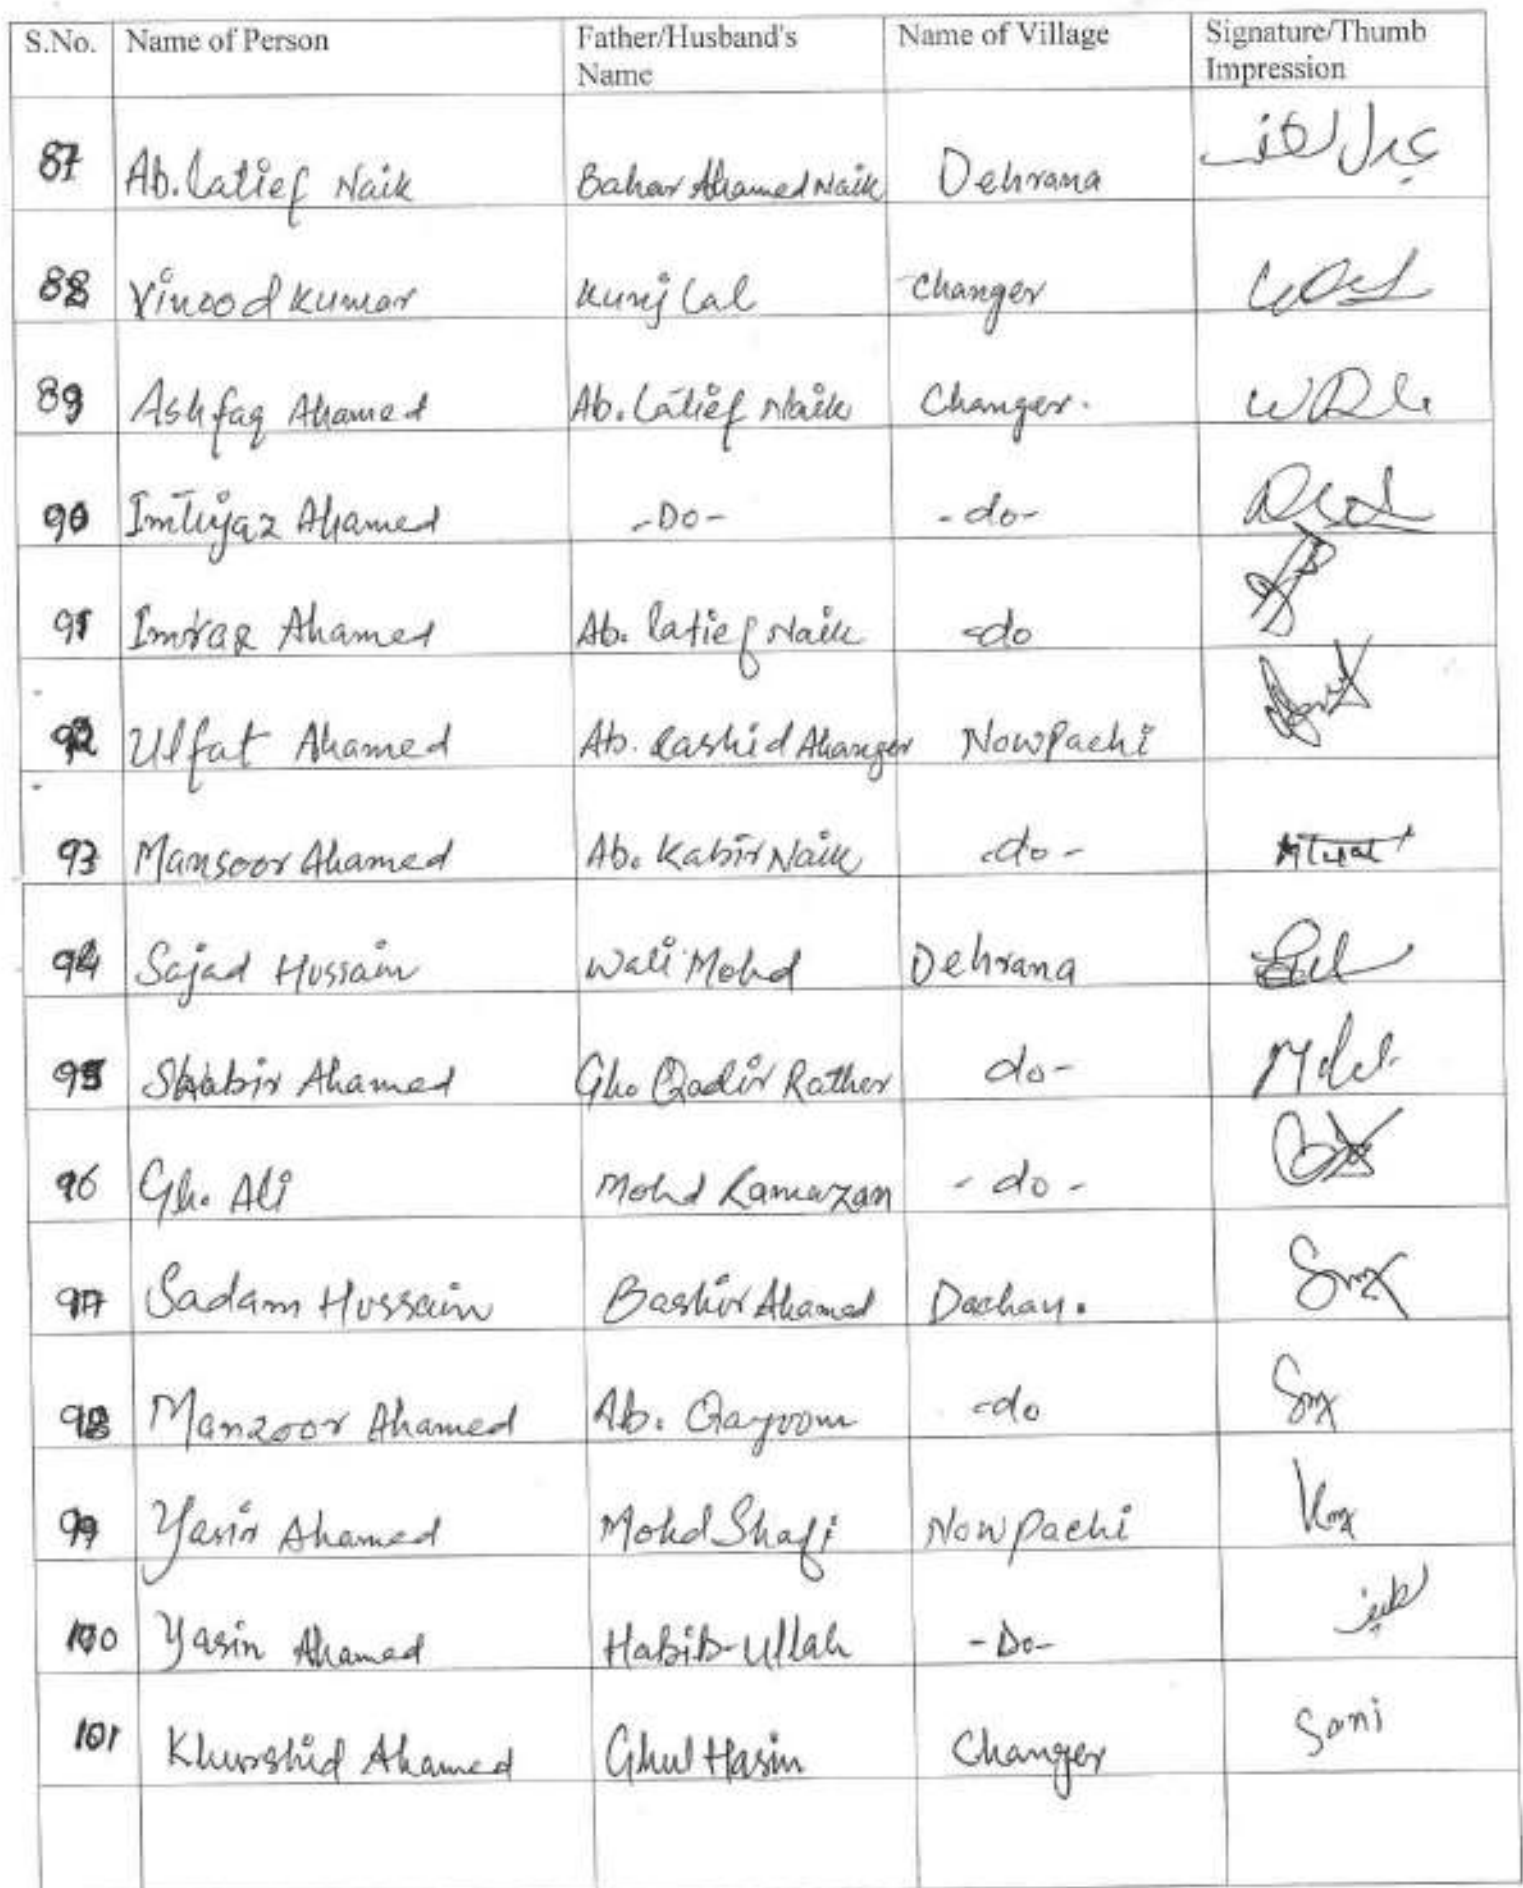 S.No. Name of Person Father/Husband's Name Name of Village Signature/Thumb Impression
87 Ab. Latief Naik Bahar Ahamed Naik Dehrana
88 Vinood Kumar Kunj Lal Changer
89 Ashfaq Ahamed Ab. Latief Naik Changer.
90 Imtiyaz Ahamed -Do- -do-
91 Ahamed Ab. Latief Naik -do
92 Ulfat Ahamed Ab. Rashid Ahanger Nowpachi
93 Mansoor Ahamed Ab. Kabir Naik -do-
94 Sajad Hussain Wali Mohd Dehrana
95 Shabir Ahamed Gh. Qadir Rather do-
96 Gh. Ali Mohd Ramazan -do-
97 Sadam Hussain Bashir Ahamed Dachan.
98 Manzoor Ahamed Ab. Qayoom -do
99 Yasir Ahamed Mohd Shafi Nowpachi
100 Yasin Ahamed Habib-Ullah -Do-
101 Khurshid Ahamed Ghul Hasin Changer Sani